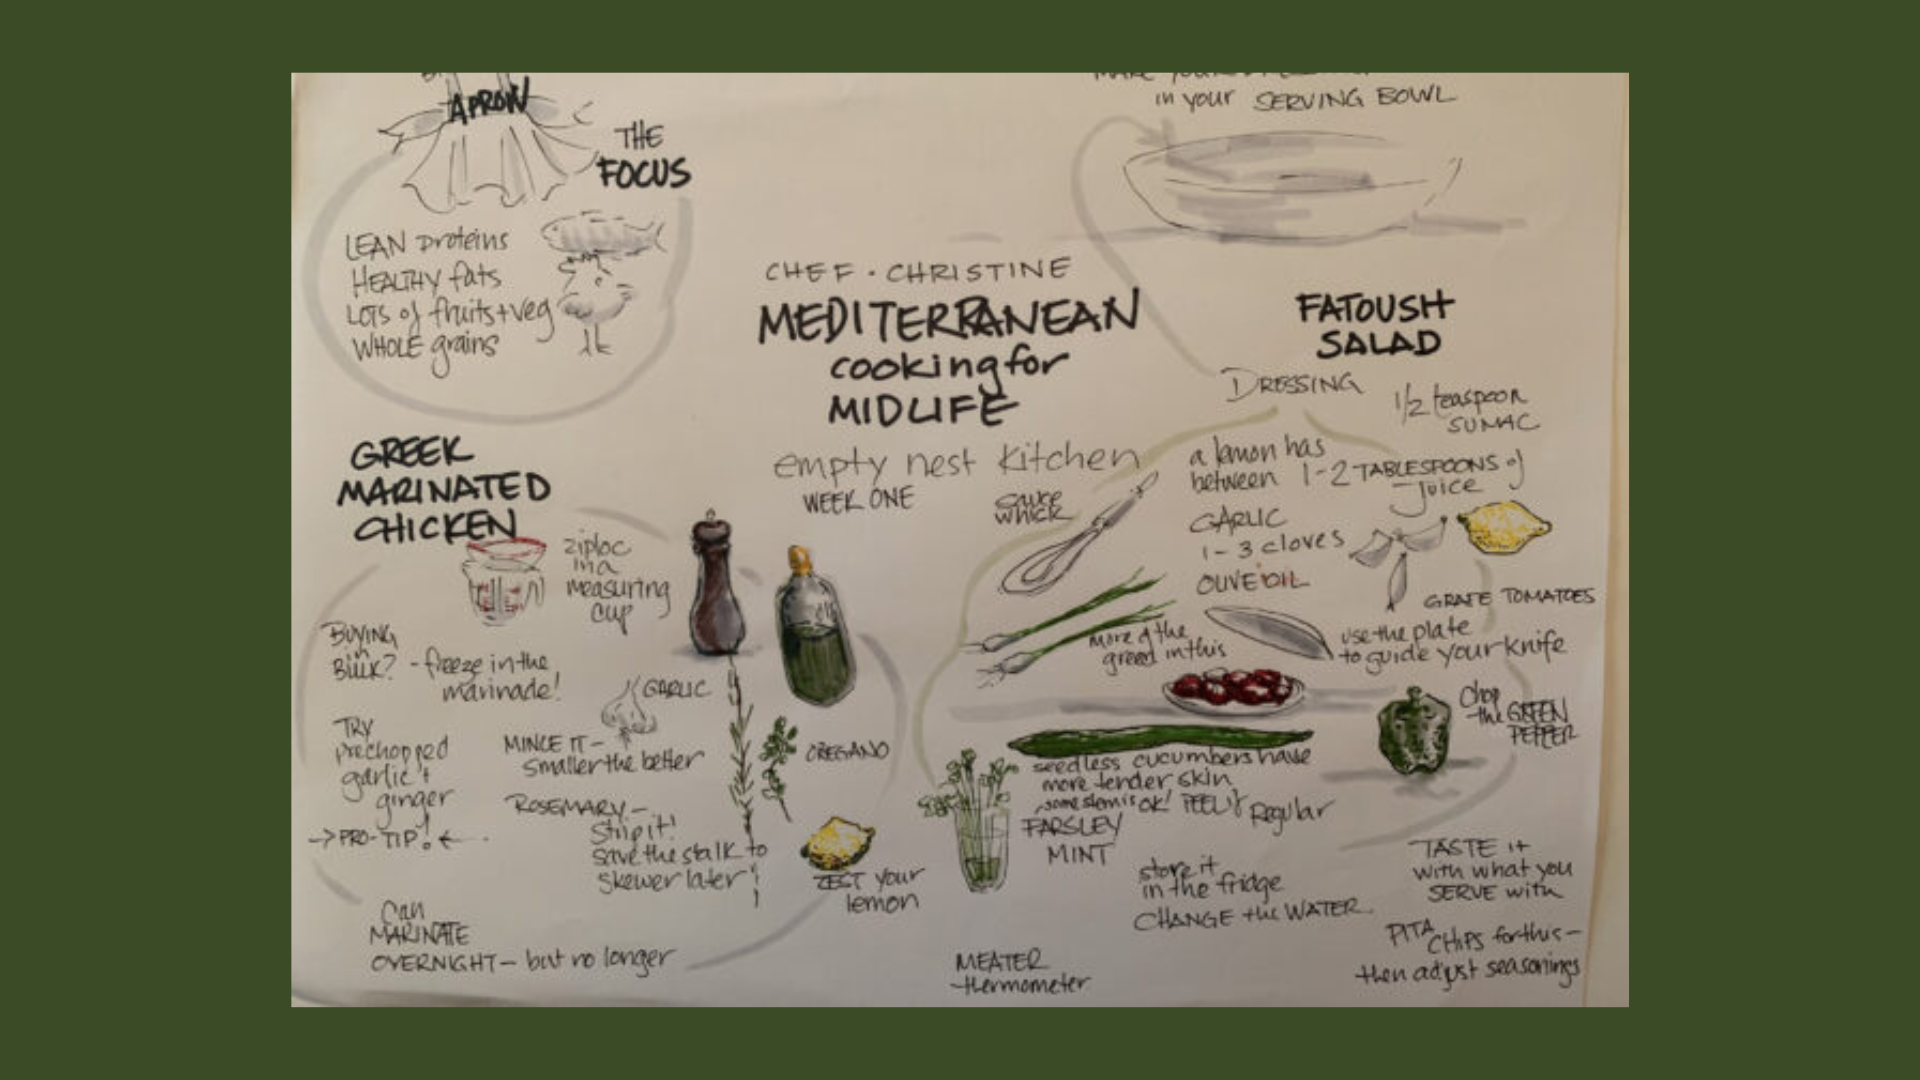 APRON
THE
FOCUS
LEAN proteins
HEALTHY fats
LOTS of fruits + veg
WHOLE grains
in your SERVING BOWL
CHEF · CHRISTINE
MEDITERRANEAN
cooking for
MIDLIFE
empty nest kitchen
WEEK ONE
GREEK
MARINATED
CHICKEN
ziploc
in a
measuring
cup
BUYING
in
BULK? - freeze in the
marinade!
TRY
prechopped
garlic +
ginger
→ PRO-TIP! ←
GARLIC
MINCE IT -
smaller the better
ROSEMARY -
Strip it!
save the stalk to
skewer later
OREGANO
ZEST your
lemon
Can
MARINATE
OVERNIGHT - but no longer
FATOUSH
SALAD
DRESSING
1/2 teaspoon
SUMAC
a lemon has
between 1-2 TABLESPOONS of
juice
SAUCE
WHICK
GARLIC
1-3 cloves
OLIVE OIL
GRATE TOMATOES
more of the
green in this
use the plate
to guide your knife
Chop
the GREEN
PEPPER
seedless cucumbers have
more tender skin
some stem is OK! PEEL Regular
PARSLEY
MINT
store it
in the fridge
CHANGE the WATER.
TASTE it
with what you
SERVE with
PITA
CHIPS for this -
then adjust seasonings
MEATER
-thermometer